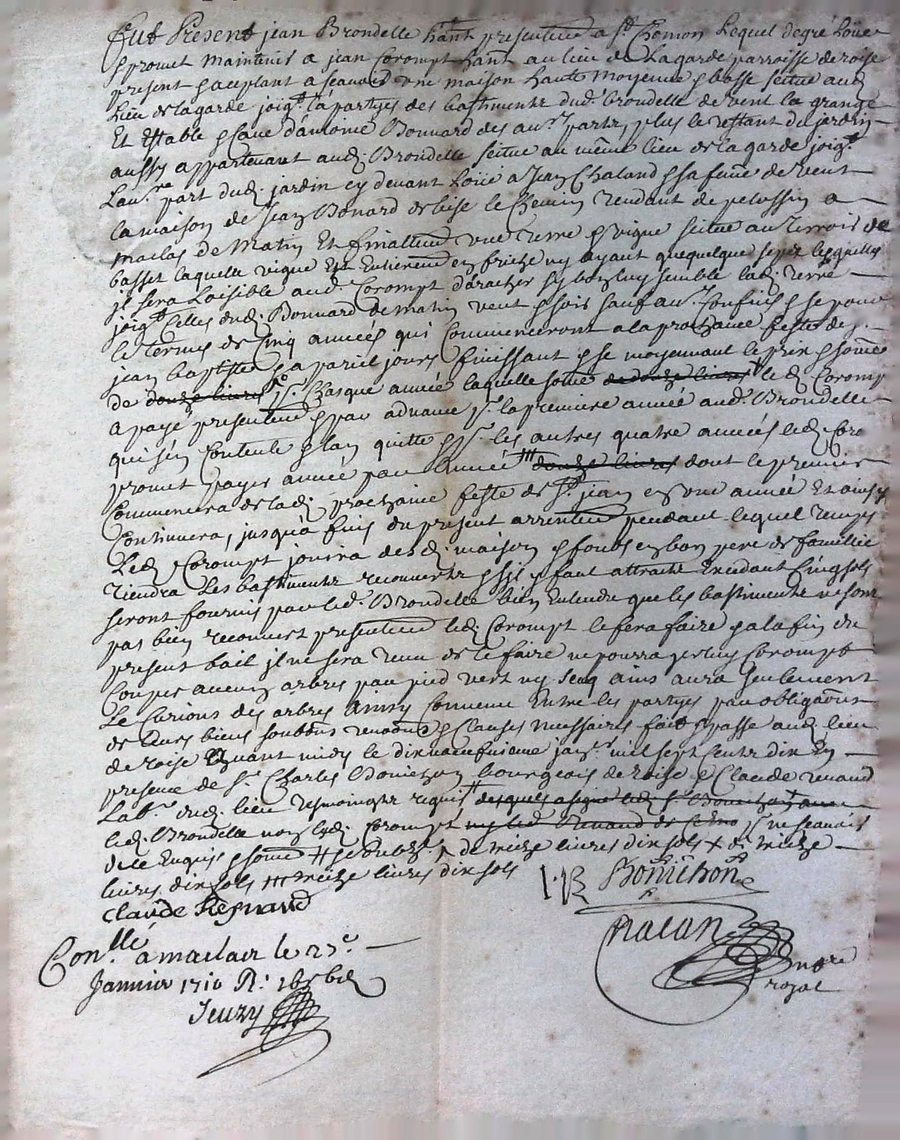 Fut Present jean Brondelle hant presentemt a St Chomon Lequel degré Loüe
& promet maintenir a jean Corompt hant au lieu de Lagarde parroisse de roise
present & aceptant a sçavoir une maison haute moyenne & basse scitue aud.
Lieu de lagarde joigt la partye des bastiments dud. brondelle de vent la grange
Et Estable & Cave d'antoine Bonnard des aues parts, plus le restant du jardin
aussy appartenant aud. Brondelle scitue au même lieu de lagarde joigt
Laure part dud. jardin cy devant Loüé a Jean Chaland & sa fame de vent
la maison de Jean Bonard de bise le Chemin tendant de pelussin a
maclas de matin Et finallemt une terre & vigne scitue au terroir de
basset laquelle vigne Est Entieremt en frieze ny ayant que quelque seps lesquels
jl sera Loisible aud. Corompt d'aracher sy bon luy semble lad. terre
joigt Celles dud. Bonnard de matin vent & soir sauf aues Confins & se pour
le terme de Cinq années qui Commenceront a la prochaine feste de st
jean baptiste & a pareil jours finissant & se moyennant le prix & somme
de douze livres pr Chasque année laquelle somme de douze livres led. Corompt
a payé presentemt & par advance pr la premiere année aud. Brondelle
qui s'en Contente & lan quitte & pr les autres quatre années led. Coro
promet payer année par année douze livres dont le premier
Commencera de lad. prochaine feste de St jean en une année Et ainsy
Continuera, jusqu'a fins du present arrentemt pendant lequel temps
Led. Corompt jouira desd. maison & fonds en bon pere de famillie
tiendra Les bastiments recouverts & sil y faut attraits Excedant Cinq sols
seront fournis par led. Brondelle bien Entendu que les bastiments ne sont
pas bien recouvert presentemt led. Corompt le fera faire & a la fin du
present bail jl ne sera tenu de le faire ne pourra jcelluy Corompt
Couper aucun arbres par pied vert ny secq ains aura seulement
Le Curions des arbres Ainsy convenu Entre les partyes par obligaõns
de Leurs biens soubmõns renoñs & Clauses necessaires fait & passé aud. lieu
de roise avant midy le dixneufvieme janer mil sept Cents dix En
presence de Sr Charles Bonichon bourgeois de roise & Claude renaud
Labr dud. lieu tesmoingts requis desquels a signé led. Sr Bonichon avec
led. Brondelle non led. Corompt ny led. Renaud de se jl ne sçavoir
de le Enquis & somé # de treize livres dix sols x de treize
livres dix sols ### treize livres dix sols
Claude Regnaud
J. B. Bonichon
Chalan
notre
royal
Conllé à maclas le 27e
Janvier 1710 R:
Jeury